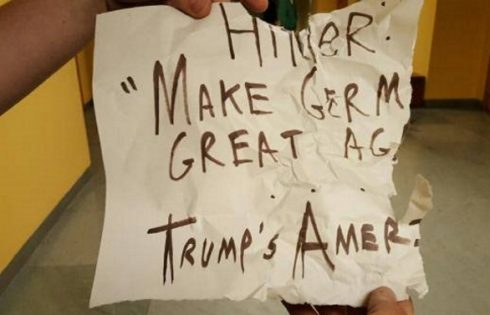 Hitler:
"MAKE GERM
GREAT AG
TRUMP'S AMER